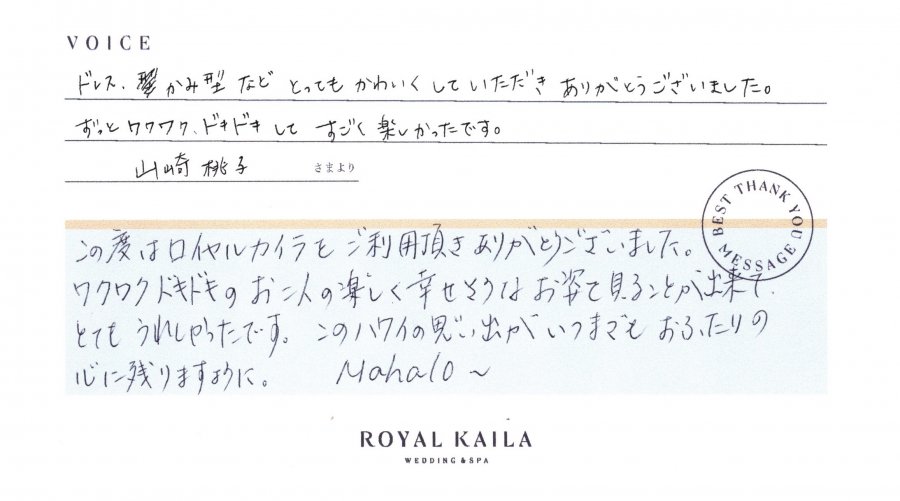 VOICE
ドレス、髪かみ型など とってもかわいくしていただき ありがとうございました。
ずっとワクワク、ドキドキして すごく楽しかったです。
山崎 桃子 さまより
BEST THANK YOU MESSAGE
この度はロイヤルカイラをご利用頂きありがとうございました。
ワクワクドキドキのお二人の楽しく幸せそうなお姿を見ることが出来て、
とてもうれしかったです。このハワイの思い出がいつまでもおふたりの
心に残りますように。 Mahalo～
ROYAL KAILA
WEDDING & SPA